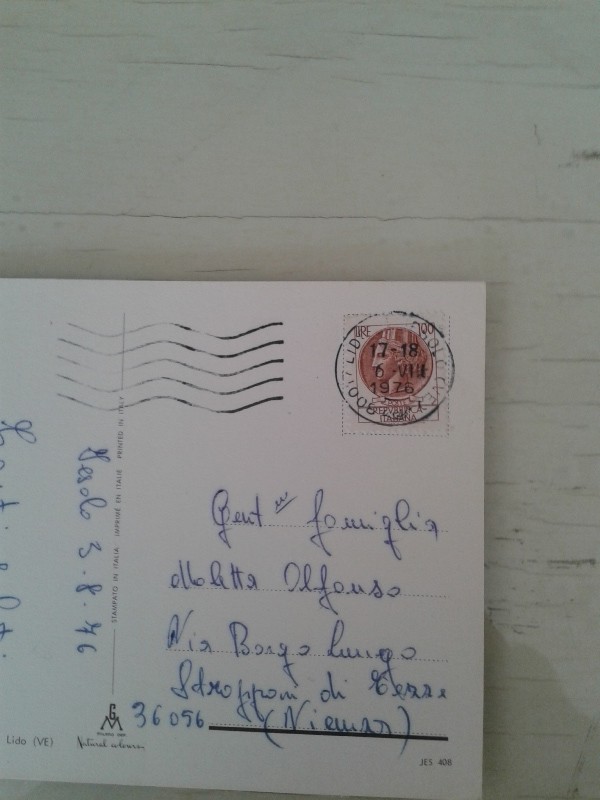 LIRE 100
17-18
6 VIII
1976
REPUBBLICA
ITALIANA
Jesolo 3.8.76
STAMPATO IN ITALIA IMPRIMÉ EN ITALIE PRINTED IN ITALY
Gent famiglia
Moletta Alfonso
Via Borgo Lungo
Stroppari di Tezze
36056 (Vicenza)
GM
Natural colours
Lido (VE)
JES 408